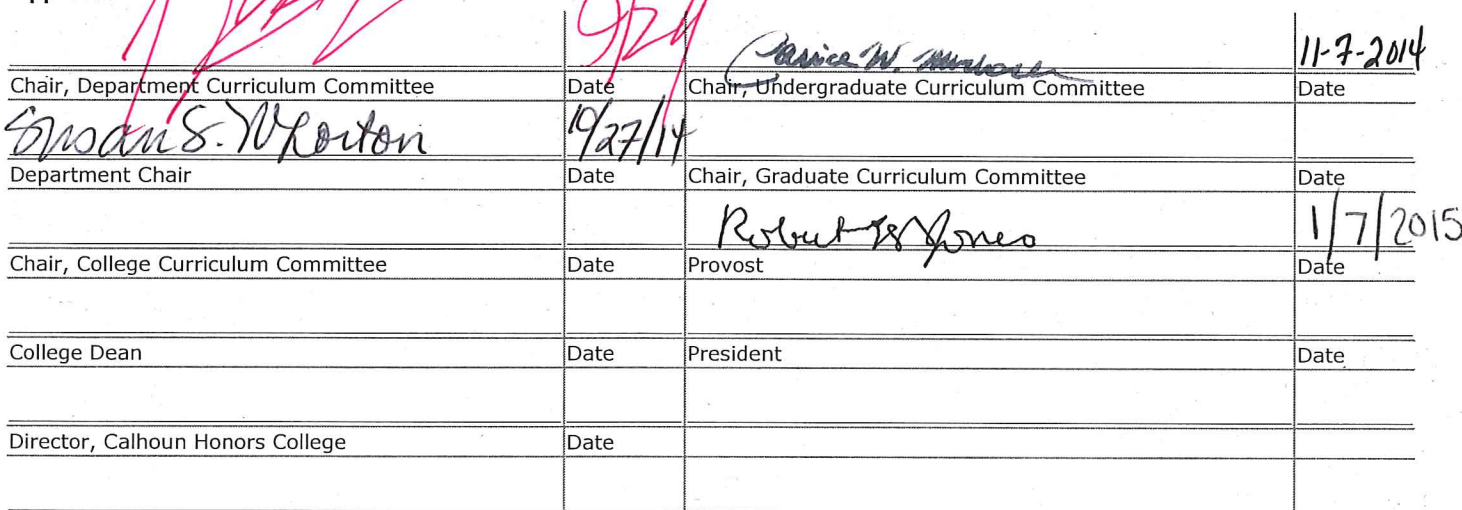 9/24 Janice W. 11-7-2014
Chair, Department Curriculum Committee Date Chair, Undergraduate Curriculum Committee Date
Susan S. Whorton 10/27/14
Department Chair Date Chair, Graduate Curriculum Committee Date
Robert H Jones 1/7/2015
Chair, College Curriculum Committee Date Provost Date
College Dean Date President Date
Director, Calhoun Honors College Date